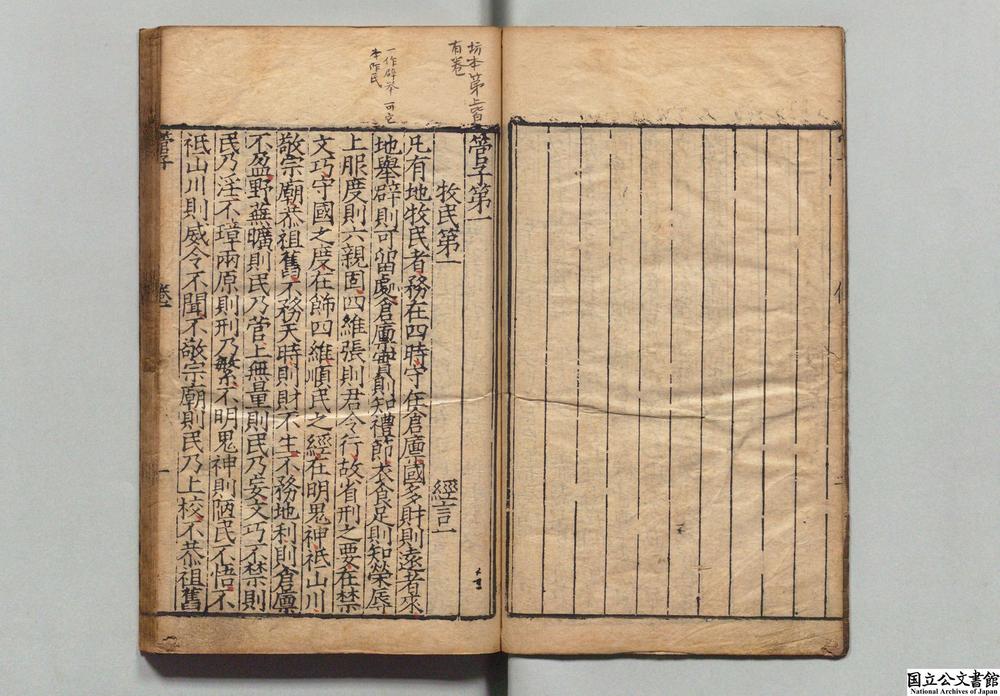 坊本第上皆
有卷
一作辟举 可
本作民
管子第一
牧民第一 經言一
凡有地牧民者務在四時守在倉廩國多財則遠者來
地舉辟則可留處倉廩實則知禮節衣食足則知榮辱
上服度則六親固四維張則君令行故省刑之要在禁
文巧守國之度在飾四維順民之經在明鬼神祇山川
敬宗廟恭祖舊不務天時則財不生不務地利則倉廩
不盈野蕪曠則民乃菅上無量則民乃妄文巧不禁則
民乃淫不璋兩原則刑乃繁不明鬼神則陋民不悟不
祇山川則威令不聞不敬宗廟則民乃上校不恭祖舊
管子 卷一 一
国立公文書館
National Archives of Japan